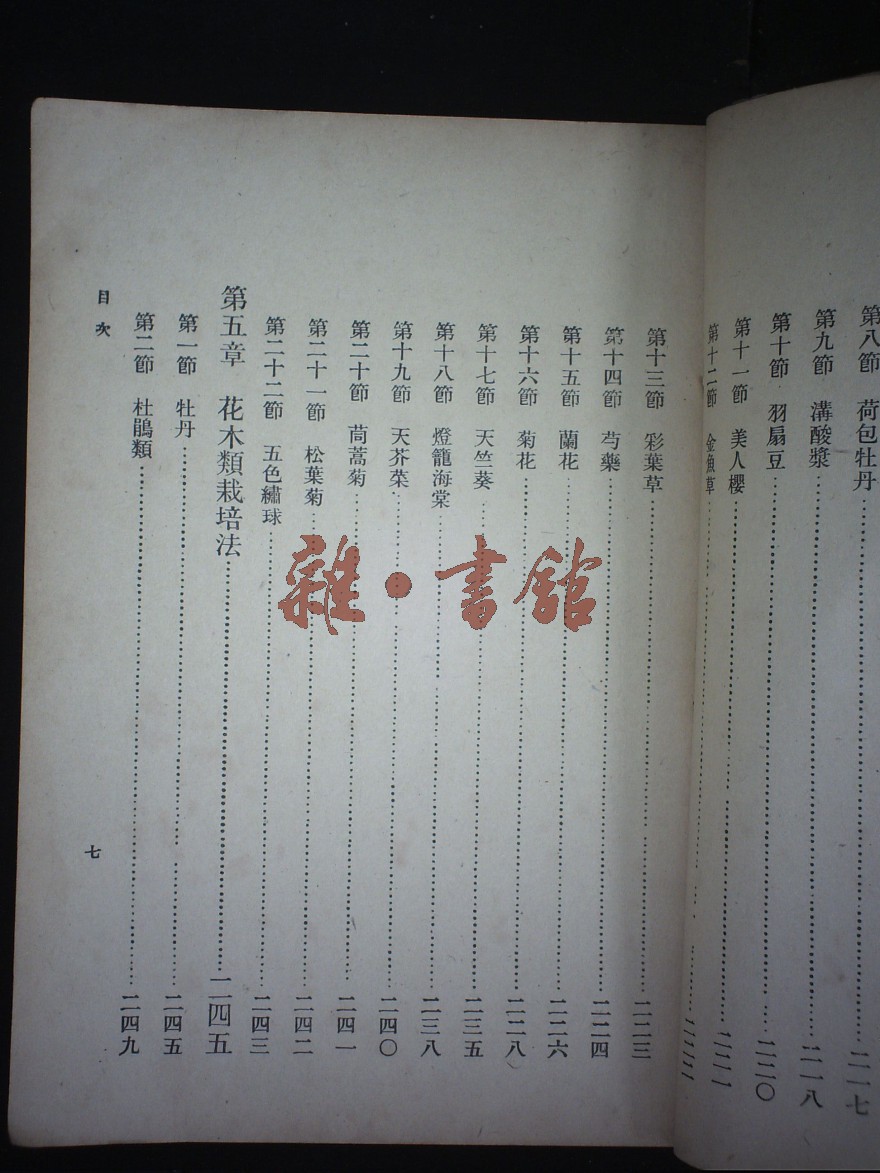 第八節 荷包牡丹 二一七
第九節 溝酸漿 二一八
第十節 羽扇豆 二二〇
第十一節 美人櫻 二二一
第十二節 金魚草 二二二
第十三節 彩葉草 二二三
第十四節 芍藥 二二四
第十五節 蘭花 二二六
第十六節 菊花 二二八
第十七節 天竺葵 二三五
第十八節 燈籠海棠 二三八
第十九節 天芥菜 二四〇
第二十節 茼蒿菊 二四一
第二十一節 松葉菊 二四二
第二十二節 五色繡球 二四三
第五章 花木類栽培法 二四五
第一節 牡丹 二四五
第二節 杜鵑類 二四九
目次
七
雜·書館